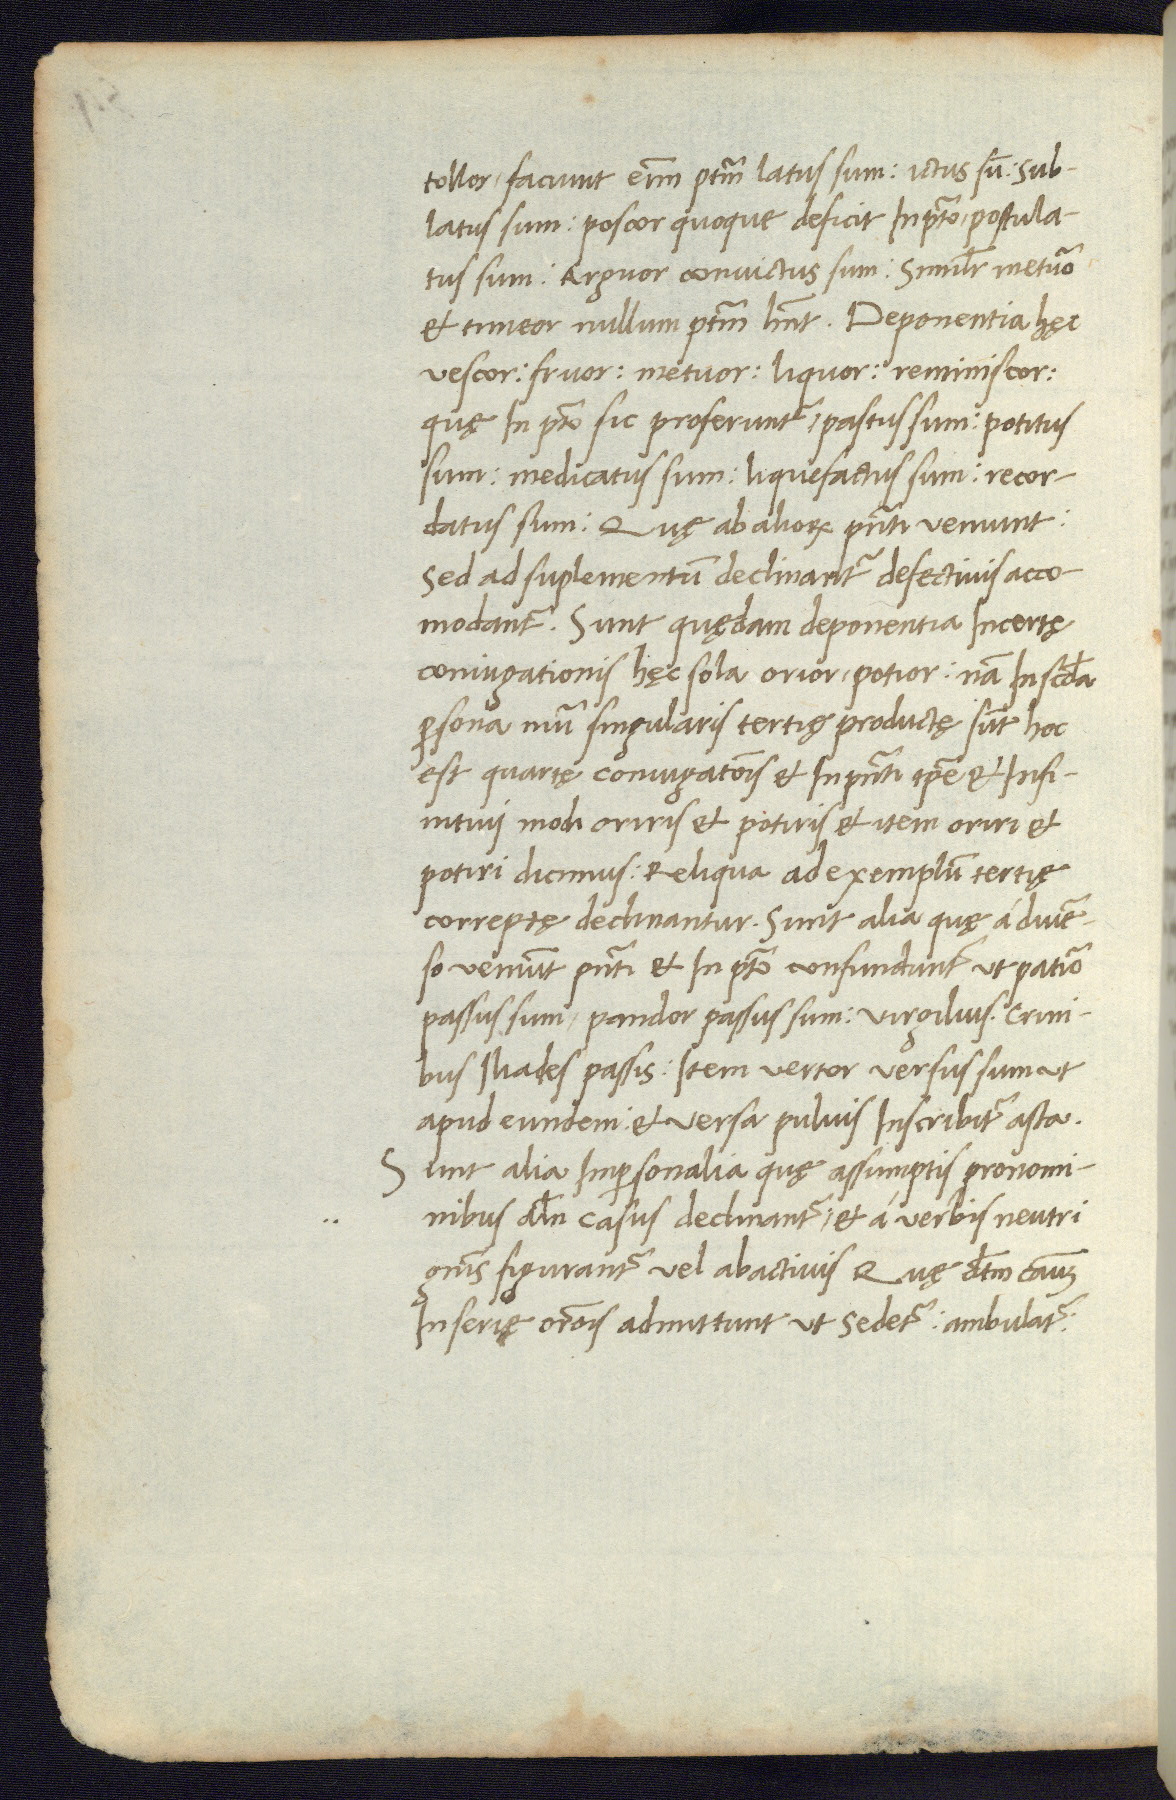 tollor, faciunt eīm ptm̄ latus sum: ictus sū: Sub-
latus sum: poscor quoque deficit In pt̄o, postula-
tus sum: Arguor convictus sum: Simil̄r metuō
& timeor nullum ptm̄ hn̄t. Deponentia hęc
vescor: fruor: metuor: liquor: reminiscor:
quę In pt̄o sic proferunt᷑, pastus sum: potitus
sum: medicatus sum: liquefactus sum: recor-
datus sum: Quę ab alioꝝ pn̄ti veniunt:
Sed ad suplementū declinant᷑ defectivis acco-
modant᷑. Sunt quędam deponentia Incertę
coniugationis hęc sola orior, potior: nā In scd̄a
ꝑsona nūī singularis tertię productę sūt hoc
est quartę coniugatōis & In pn̄ti tp̄e & Infi-
nitivi modi oriris & potiris & item oriri &
potiri dicimus: Reliqua ad exemplū tertię
correptę declinantur. Sunt alia quę á diuē-
so veniūt pn̄ti & In pt̄o confundunt᷑ ut patiō
passus sum, pandor passus sum: Virgilius. Crini-
bus Iliades passis: Item vertor versus sum ut
apud eundem: & versa pulvis Inscribit᷑ asta.
Sunt alia Inꝑsonalia quę assumptis pronomi-
nibus dt̄in casus declinant᷑, & á verbis neutri
gn̄is figurant᷑ vel ab activis Quę dt̄m cāuꝫ
In serię orōnis admittunt ut Sedet᷑: ambulat᷑: